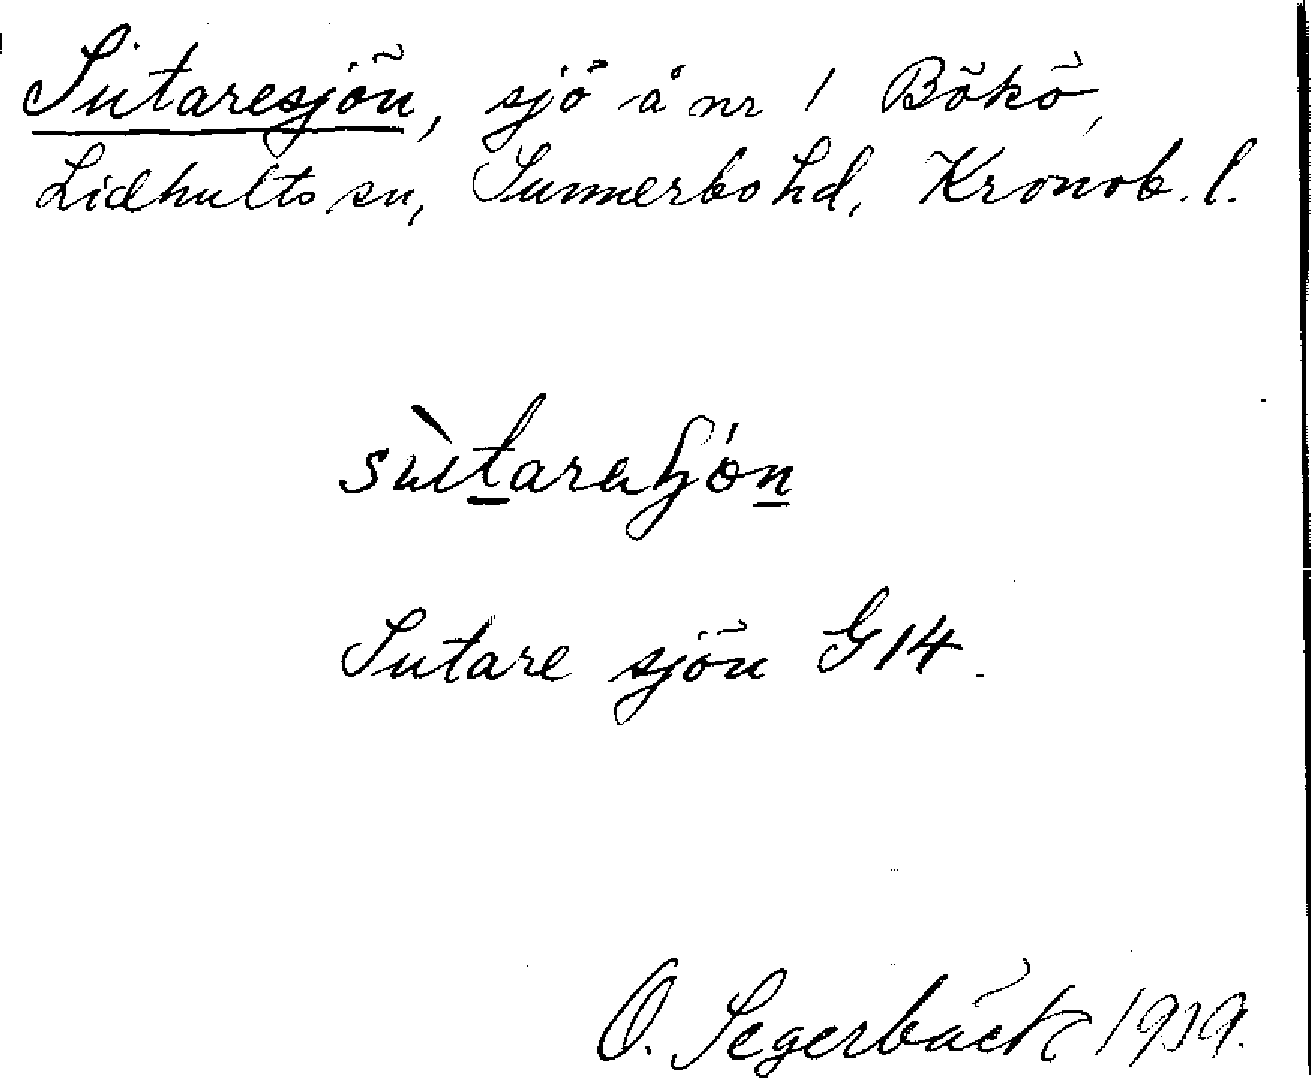 Sutaresjön, sjö å nr 1 Bökö,
Lidhults sn, Sunnerbo hd, Kronob. l.
Sutare sjön G 14.
O. Segerbäck 1939.